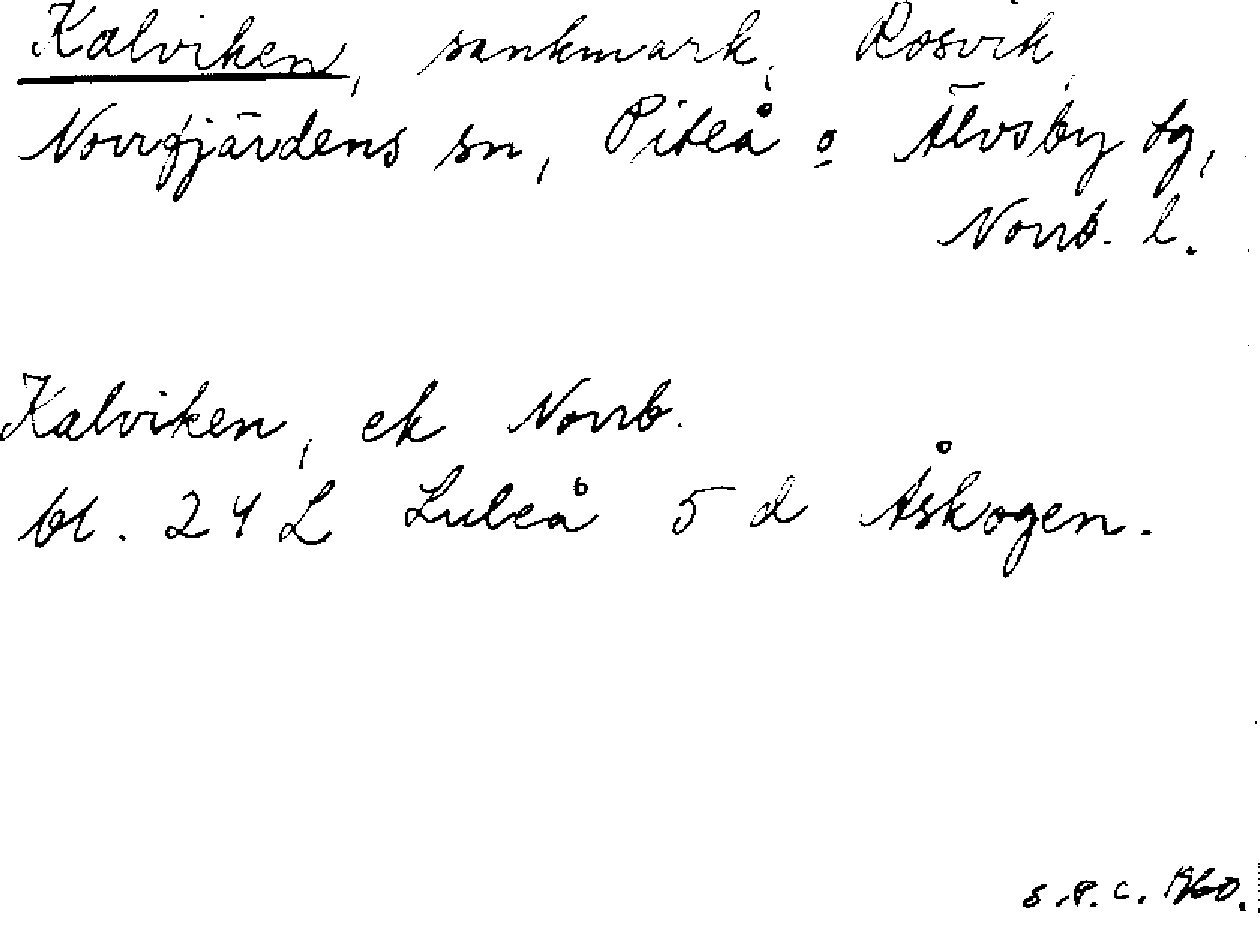 Kalviken, sankmark, Rosvik,
Norrfjärdens sn, Piteå o Älvsby tg,
Norrb. l.
Kalviken, ek Norrb.
bl. 24 L Luleå 5 d Åskogen.
S.P.C. 1960.